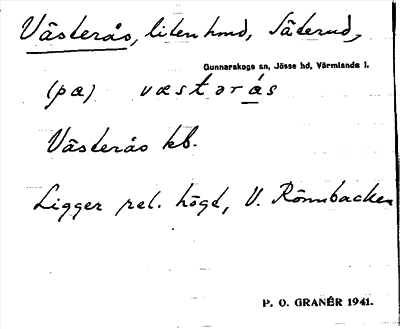 Västerås, liten hmd, Säterud,
Gunnarskogs sn, Jösse hd, Värmlands l.
(pa) væstərás
Västerås kb.
Ligger rel. högt, V. Rönnbacken
P. O. GRANÉR 1941.